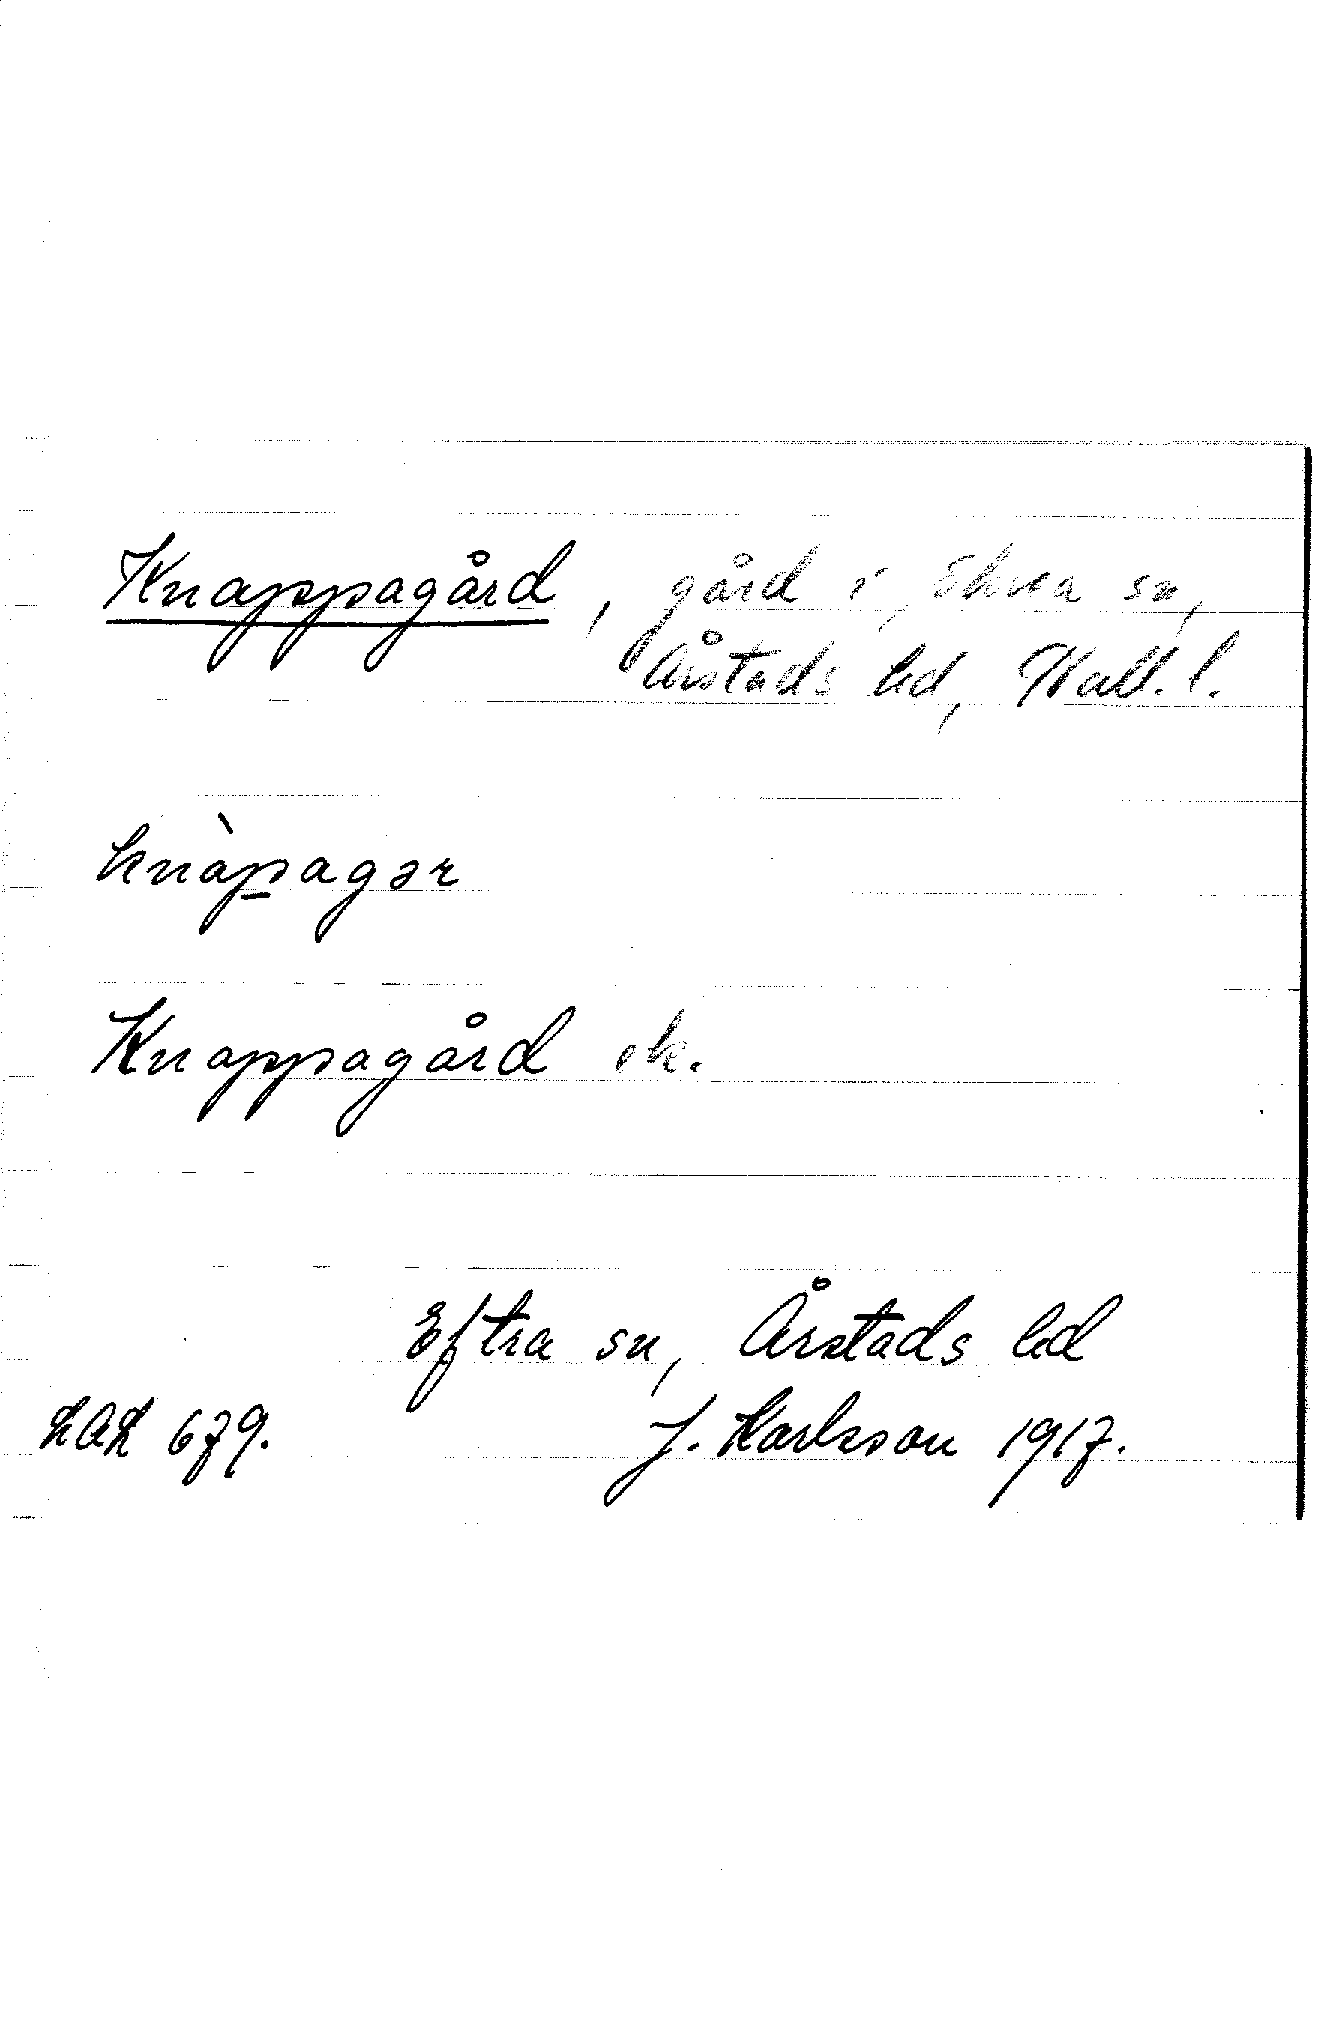 Knappagård, gård i Skrea sn,
Årstads hd, Hall. l.
knàp̱agər
Knappagård ek.
Eftra sn, Årstads hd
LAL 679. J. Karlsson 1917.